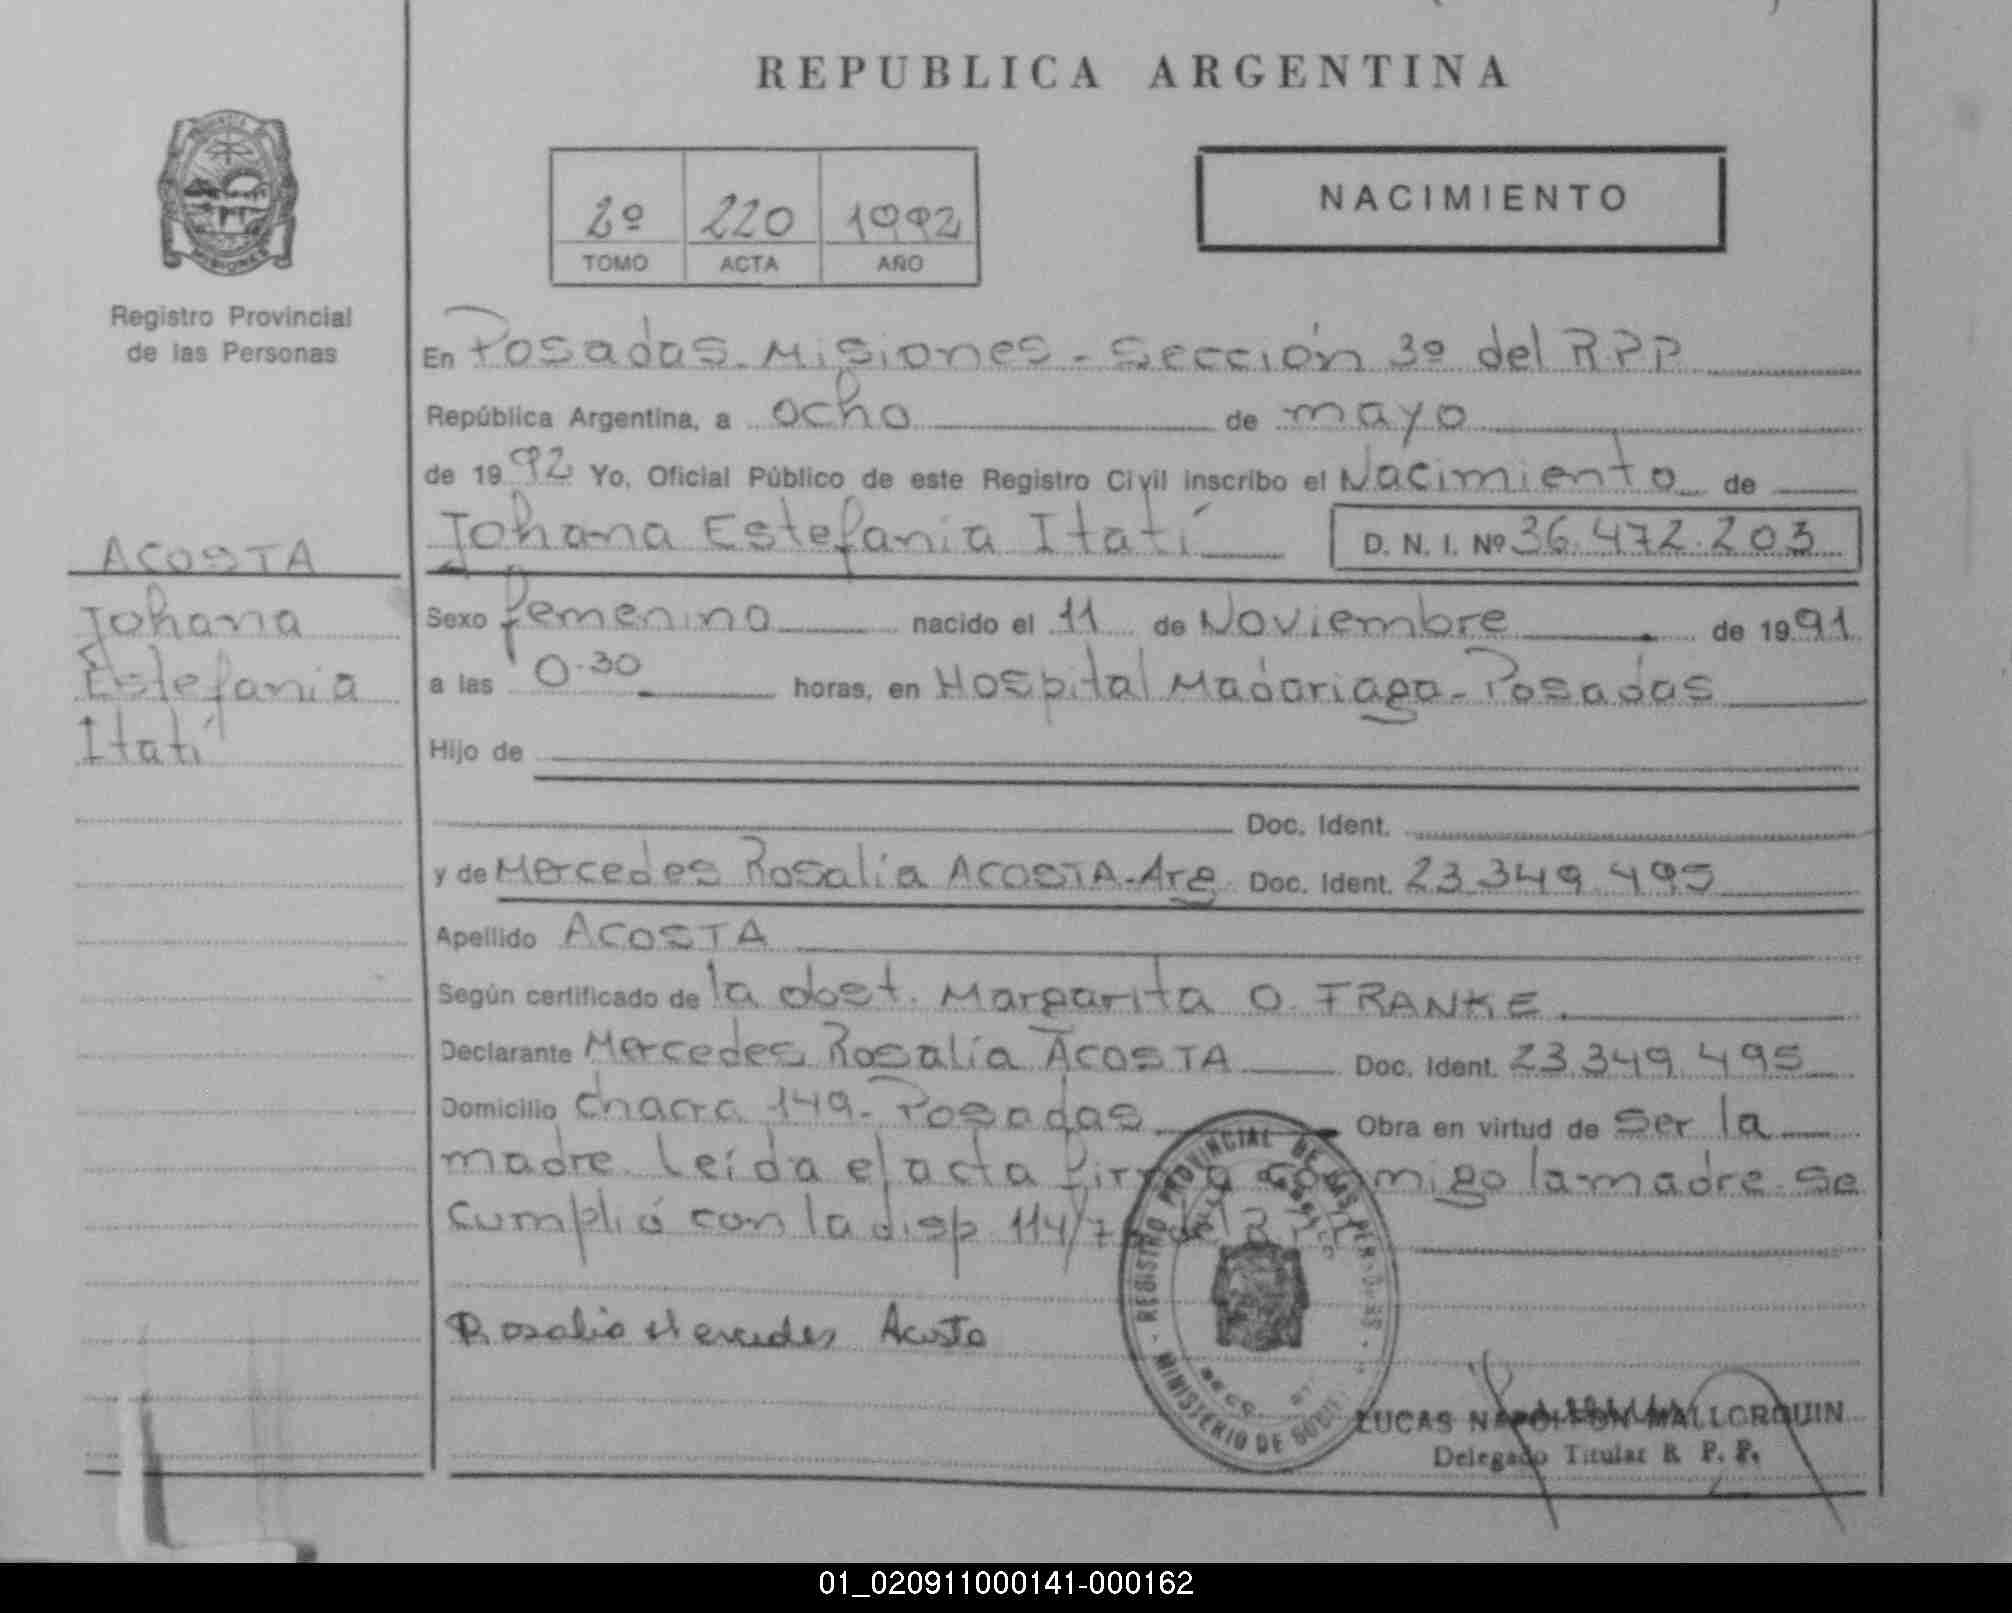 REPUBLICA ARGENTINA
PROVINCIA DE
MISIONES
Registro Provincial
de las Personas
2º 220 1992
TOMO ACTA AÑO
NACIMIENTO
En Posadas. Misiones - Sección 3º del R.P.P.
República Argentina, a ocho de mayo
de 1992 Yo, Oficial Público de este Registro Civil inscribo el Nacimiento de
Johana Estefania Itatí D. N. I. Nº 36.472.203
ACOSTA
Johana
Estefania
Itatí
Sexo femenino nacido el 11 de Noviembre de 1991
a las 0.30 horas, en Hospital Madariaga - Posadas
Hijo de
Doc. Ident.
y de Mercedes Rosalía ACOSTA - Arg Doc. Ident. 23.349.495
Apellido ACOSTA
Según certificado de la obst. Margarita O. FRANKE
Declarante Mercedes Rosalía ACOSTA Doc. Ident. 23.349.495
Domicilio chacra 149 - Posadas Obra en virtud de ser la
madre. Leída el acta firma conmigo la madre. Se
cumplió con la disp 114/7 del
Rosalia Mercedes Acosta
REGISTRO PROVINCIAL DE LAS PERSONAS
MINISTERIO DE GOBIE
LUCAS NAPOLEON MALLORQUIN
Delegado Titular R. P. P.
01_020911000141-000162